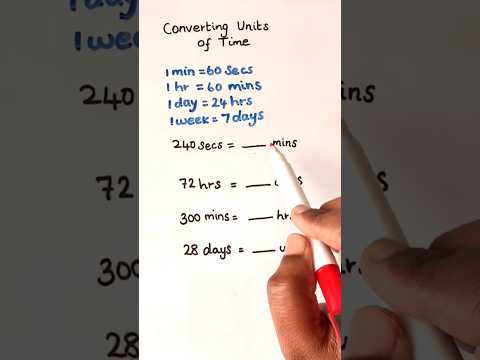 Converting Units
of Time
1 min = 60 secs
1 hr = 60 mins
1 day = 24 hrs
1 week = 7 days
240 secs = ___ mins
72 hrs = ___
300 mins = ___ hr
28 days = ___